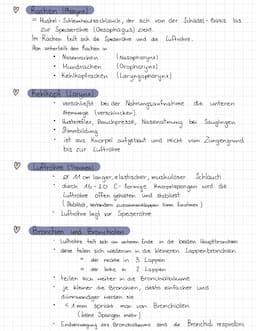 Rachen (Pharynx)
= Muskel-Schleimhautschlauch, der sich von der Schädelbasis bis
zur Speiseröhre (Oesophagus) zieht.
Im Rachen teilt sich die Speiseröhre und die Luftröhre.
Man unterteilt den Rachen in
• Nasenrachen (Nasopharynx)
• Mundrachen (Oropharynx)
• Kehlkopfrachen (Laryngopharynx)
Kehlkopf (Larynx)
• verschließt bei der Nahrungsaufnahme die unteren
Atemwege (verschlucken)
• Hustenreflex, Bauchpresse, bei Säuglingen
• Stimmbildung
• ist aus Knorpel aufgebaut und reicht vom Zungengrund
bis zur Luftröhre
Luftröhre (Trachea)
• Ø 11 cm langer, elastischer, muskulöser Schlauch
• durch 16-20 C-förmige Knorpelspangen wird die
Luftröhre offen gehalten und stabilisiert
(Stabilität, verhindern zusammenklappen beim Einatmen)
• Luftröhre liegt vor Speiseröhre
Bronchien und Bronchiolen
• Luftröhre teilt sich am unteren Ende in die beiden Hauptbronchien
• diese teilen sich wiederum in die kleineren Lappenbronchien
= der rechte in 3 Lappen
= der linke in 2 Lappen
• teilen sich weiter in die Bronchialbäume
• je kleiner die Bronchien, desto einfacher und
dünnwandiger werden sie
• < 1 mm spricht man von Bronchiolen
(keine Spangen mehr)
• Endverzweigung des Bronchialbaums sind die Bronchioli respiratorii